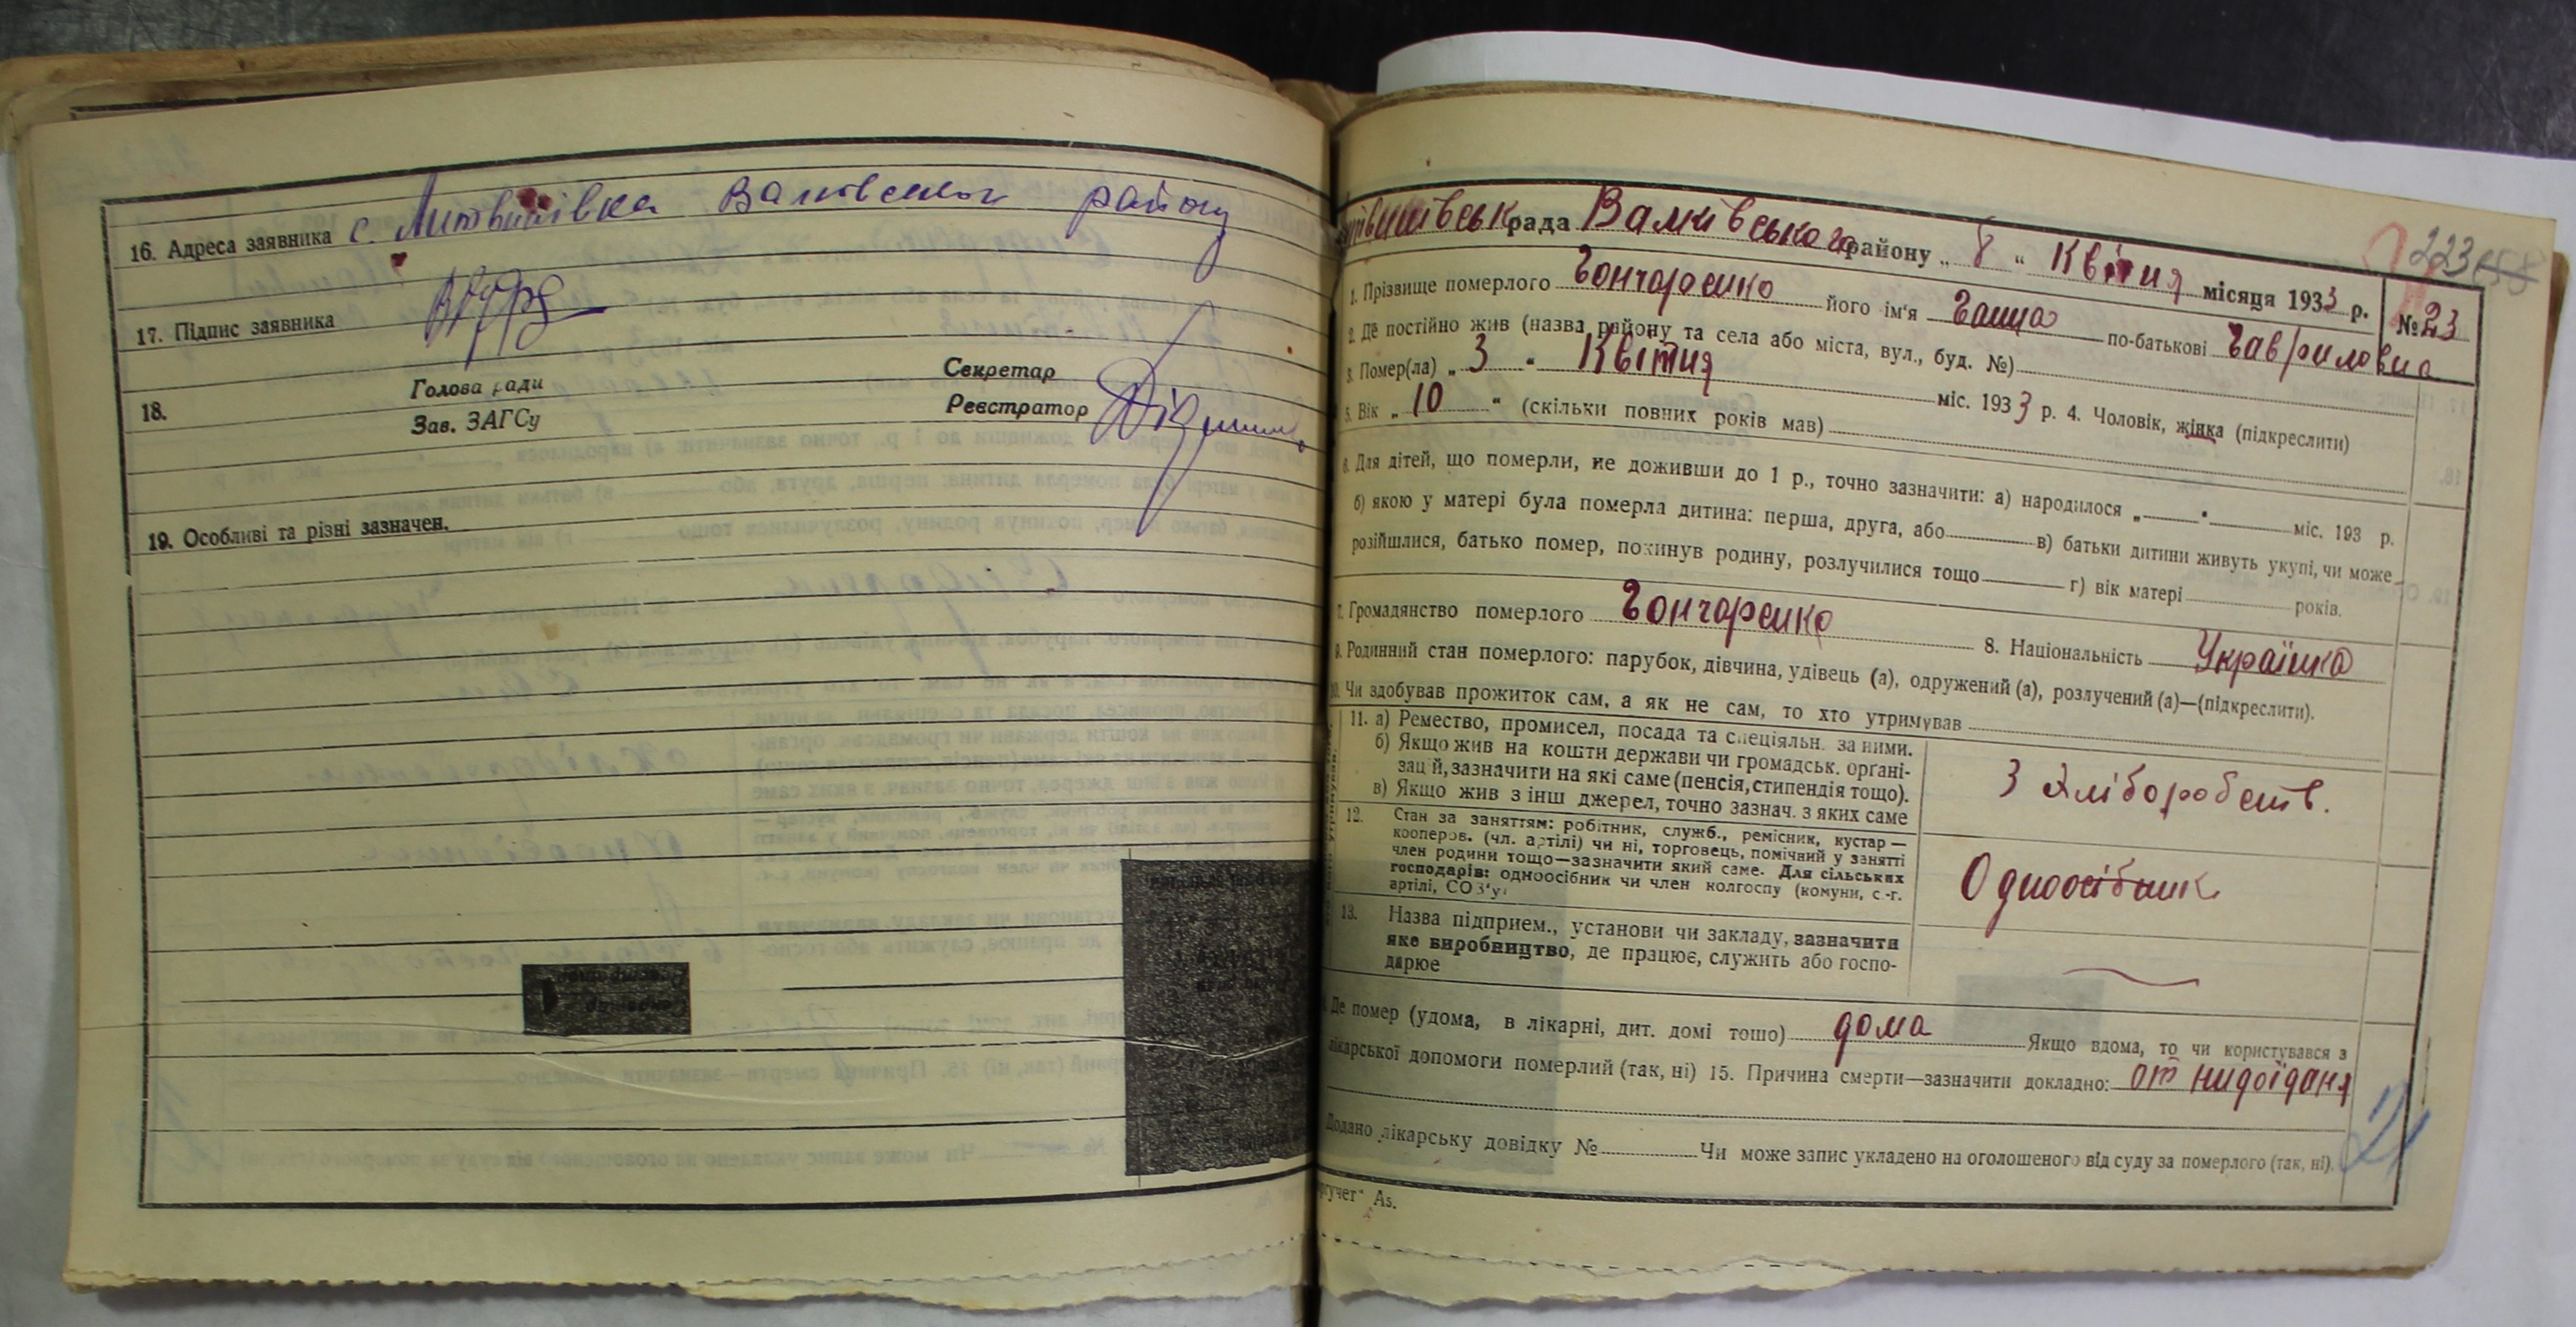 16. Адреса заявника с. Литвинівка Валковського району
17. Підпис заявника
18. Голова ради
Зав. ЗАГСу
Секретар
Реєстратор
19. Особливі та різні зазначен.
рада Валківського району „ 8 " Квітня місяця 1933 р.
№ 23
223
1. Прізвище померлого Гончаренко його ім'я Ганна по-батькові Гавриловна
2. Де постійно жив (назва району та села або міста, вул., буд. №)
3. Помер(ла) „ 3 " Квітня міс. 1933 р. 4. Чоловік, жінка (підкреслити)
5. Вік „ 10 " (скільки повних років мав)
6. Для дітей, що померли, не доживши до 1 р., точно зазначити: а) народилося „ " міс. 193 р.
б) якою у матері була померла дитина: перша, друга, або в) батьки дитини живуть укупі, чи може
розійшлися, батько помер, покинув родину, розлучилися тощо г) вік матері років.
7. Громадянство померлого Гончаренко 8. Національність Українка
9. Родинний стан померлого: парубок, дівчина, удівець (а), одружений (а), розлучений (а)—(підкреслити).
10. Чи здобував прожиток сам, а як не сам, то хто утримував
11. а) Ремество, промисел, посада та спеціяльн. за ними.
б) Якщо жив на кошти держави чи громадськ. органі-
зацій, зазначити на які саме (пенсія, стипендія тощо).
в) Якщо жив з інш джерел, точно зазнач. з яких саме
З Хліборобств.
12. Стан за заняттям: робітник, служб., ремісник, кустар —
кооперов. (чл. артілі) чи ні, торговець, помічний у занятті
член родини тощо—зазначити який саме. Для сільських
господарів: одноосібник чи член колгоспу (комуни, с.-г.
артілі, СОЗ'у)
Одноосібник
13. Назва підприєм., установи чи закладу, зазначити
яке виробництво, де працює, служить або госпо-
дарює
Де помер (удома, в лікарні, дит. домі тощо) дома Якщо вдома, то чи користувався з
лікарської допомоги померлий (так, ні) 15. Причина смерти—зазначити докладно: от нидоїданя
Додано лікарську довідку № Чи може запис укладено на оголошеного від суду за померлого (так, ні).
21
As.